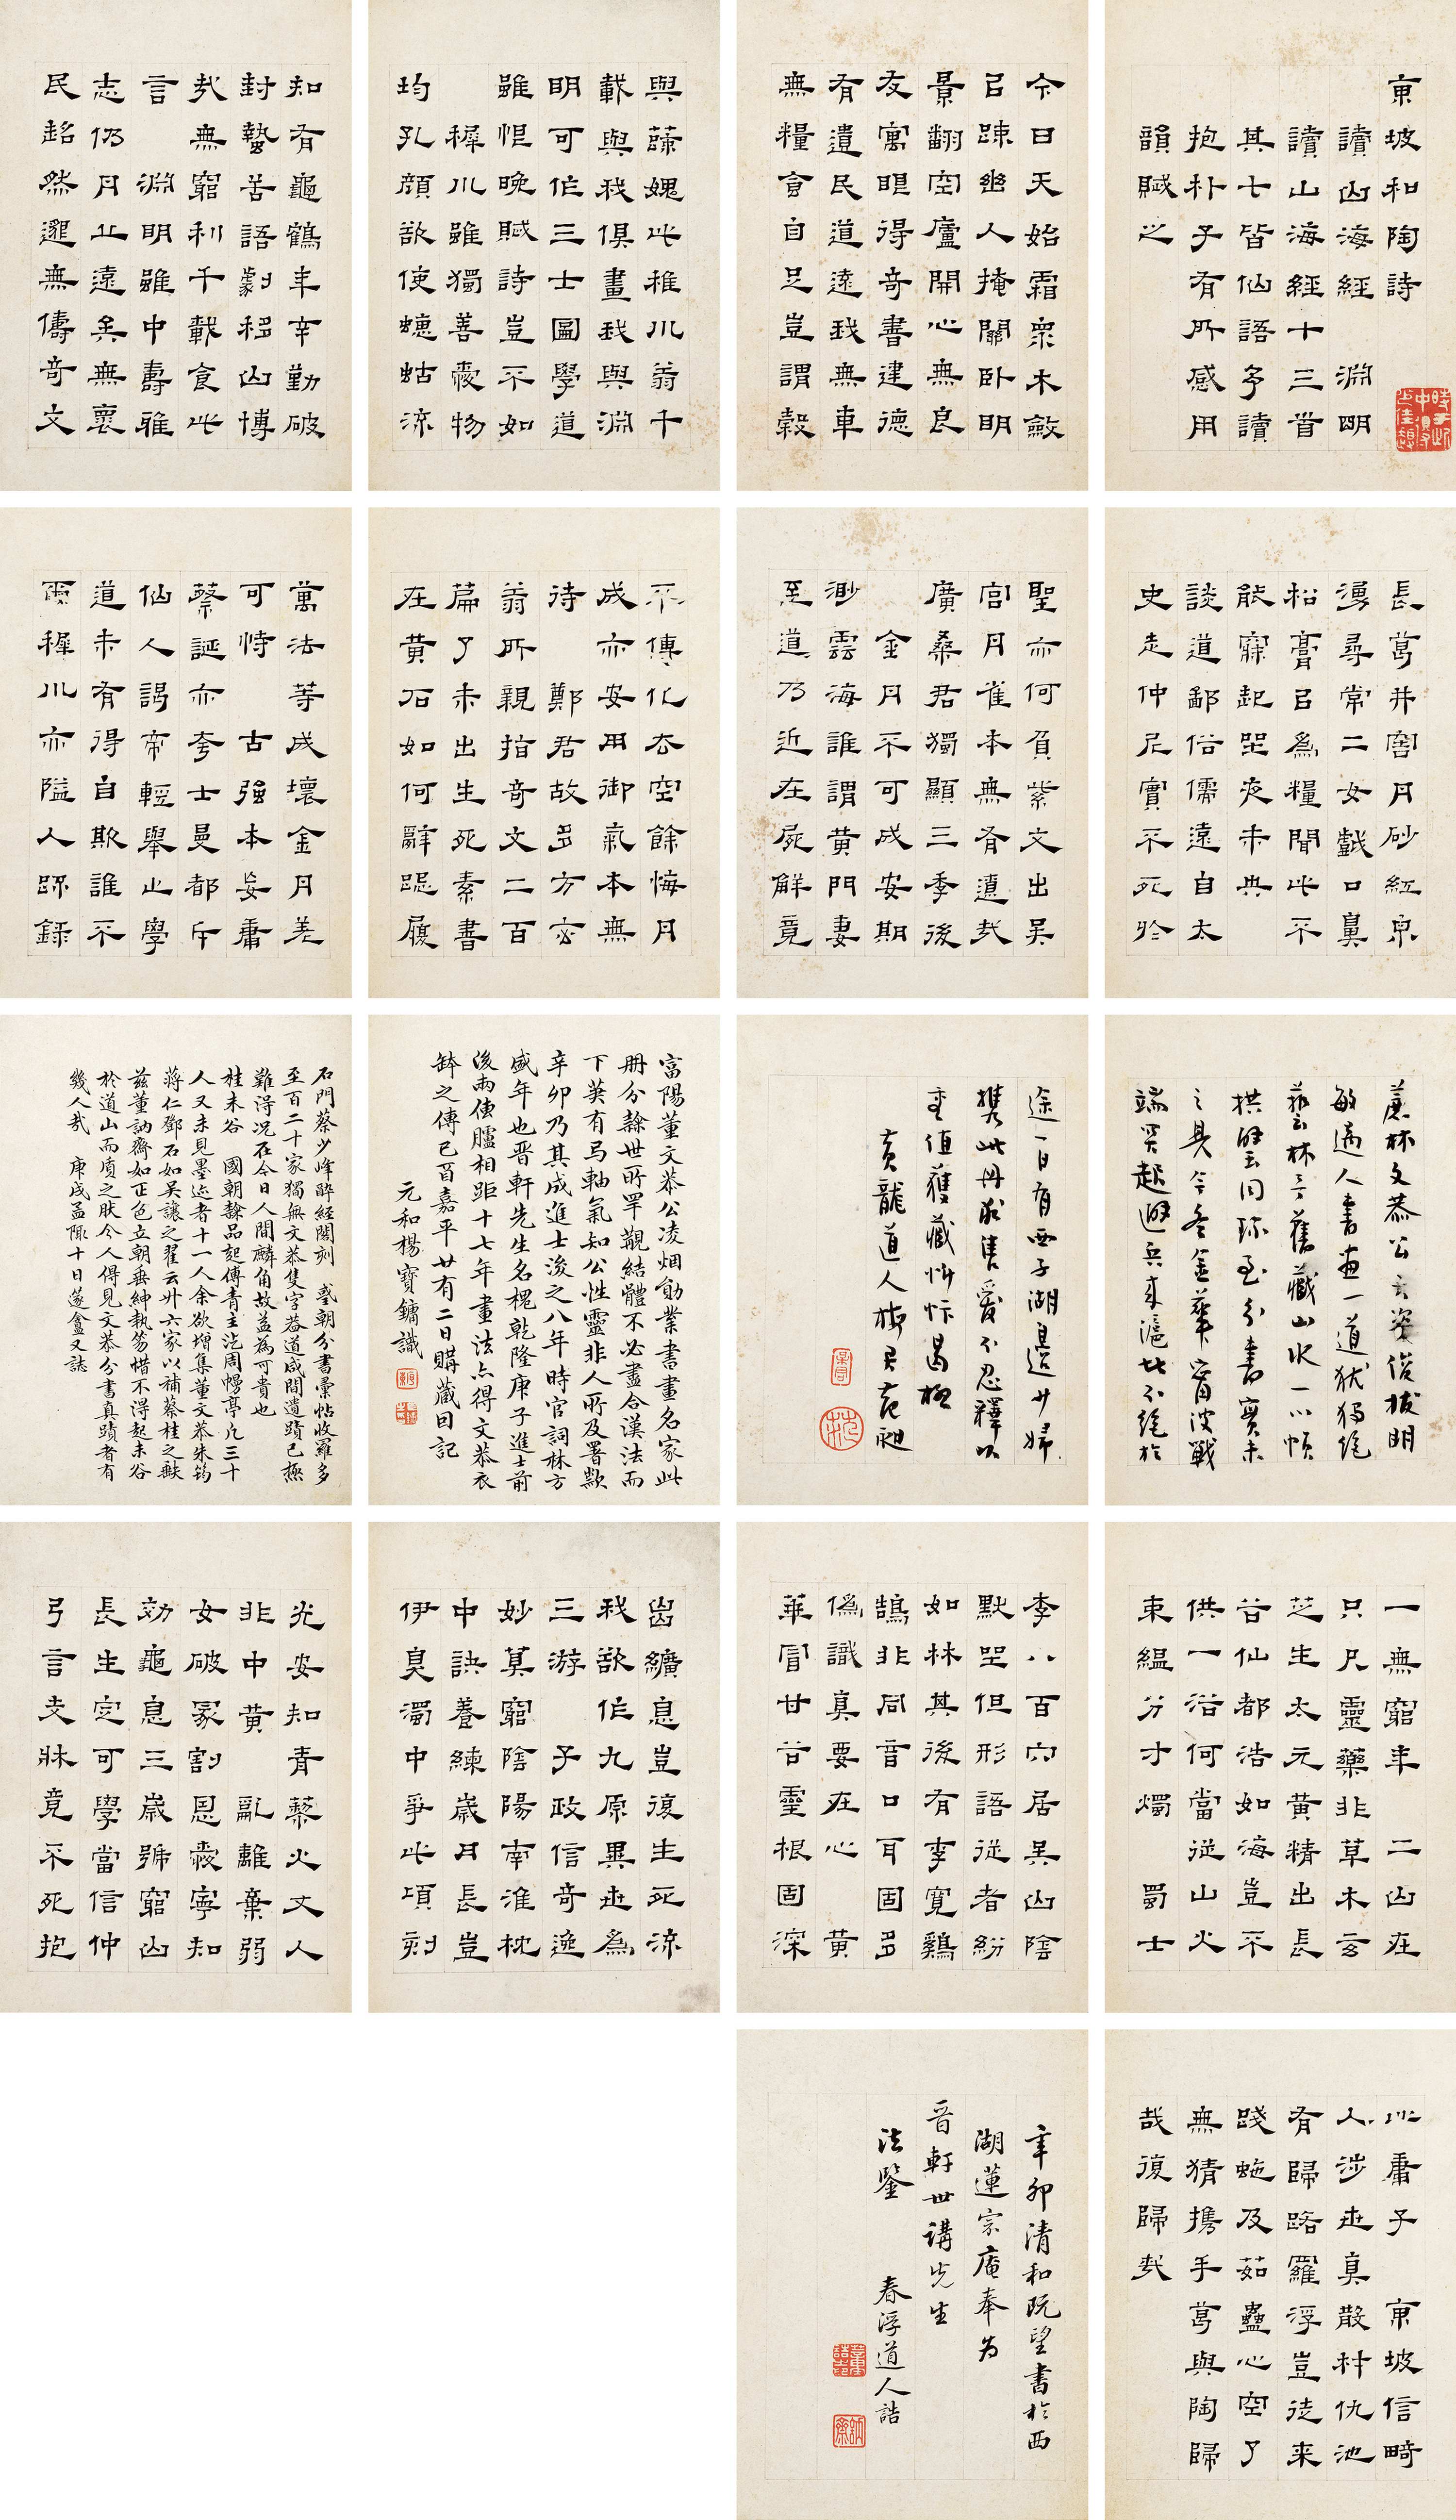 東坡和陶詩
讀山海經 淵明
讀山海經十三首
其七皆仙語多讀
抱朴子有所感用
韻賦之
今日天始霜衆木斂
以疎幽人掩關臥明
景翻空廬開心無良
友寓眼得奇書建德
有遺民道遠我無車
無糧食自足豈謂穀
與蔬媿此稚川翁千
載與我俱畫我與淵
明可作三士圖學道
雖恨晚賦詩豈不如
稚川雖獨善愛物
均孔顏欲使蟪蛄流
知有龜鶴年辛勤破
封蟄苦語劇移山博
哉無窮利千載食此
言 淵明雖中壽雅
志仍丹丘遠矣無褱
民超然邈無儔奇文
長葛井窖丹砂紅泉
湧尋常二女戲口鼻
松膏以為糧聞此不
能寐起坐夜未央
談道鄙俗儒遠自太
史走仲尼實不死於
聖亦何負紫文出吳
宮丹雀本無有遼哉
廣桑君獨顯三季後
金丹不可成安期
渺雲海誰謂黃門妻
至道乃近在屍解竟
不傳化去空餘悔丹
成亦安用御氣本無
待 鄭君故多方玄
翁所親指奇文二百
篇了未出生死素書
在黃石如何辭跽履
萬法等成壞金丹差
可恃 古強本妄庸
蔡誕亦夸士曼都斥
仙人謁帝輕舉止學
道未有得自欺誰不
爾稚川亦隘人疎錄
蔗林文恭公天資俊拔明
敏過人書畫一道狀獨絕
藝林予舊藏山水一小幀
拱璧同珍至分書實未
之見今冬金華甯波戰
端突起避兵來滬比不絕於
途一日有西子湖邊少婦
携此冊求售愛不忍釋以
重值獲藏忻忭曷極
黃龍道人梅君范昶
富陽董文恭公凌烟勛業書畫名家此
冊分隸世所罕覯結體不必盡合漢法而
下筆有馬軸氣知公性靈非人所及署欵
辛卯乃其成進士後之八年時官詞林方
盛年也晉軒先生名槐乾隆庚子進士前
後兩傳臚相距十七年畫法亦得文恭衣
鉢之傳己酉嘉平廿有二日購藏因記
元和楊寶鏞識
石門蔡少峰醉經閣刻 國朝分書彙帖收羅多
至百二十家獨無文恭隻字蓋道咸間遺蹟已極
難得况在今日人間麟角故益為可貴也
桂未谷 國朝隸品起傅青主訖周幔亭凡三十
人又未見墨迹者十一人余欲增集董文恭朱筠
蔣仁鄧石如吳讓之翟云升六家以補蔡桂之缺
兹董訥齋如正色立朝垂紳執笏惜不得起未谷
於道山而質之肰今人得見文恭分書真蹟者有
幾人哉 庚戌孟陬十日蓬盦又誌
一無窮年 二山在
只尺靈藥非草木玄
芝生太元黃精出長
谷仙都浩如海豈不
供一浴何當從山火
束縕分寸燭 蜀士
李八百穴居吳山陰
默坐但形語從者紛
如林其後有李寬鷄
鵠非同音口耳固多
偽識真要在心 黃
華冒甘谷靈根固深
齒纊息豈復生死流
我欲作九原異世為
三游 子政信奇逸
妙算窮陰陽南淮枕
中訣養練歲月長豈
伊臭濁中爭此頃刻
光安知青藜火丈人
非中黃 亂離棄弱
女破冢割恩愛寧知
効龜息三歲號窮山
長生定可學當信仲
弓言支牀竟不死抱
此庸子 東坡信畸
人涉世真散材仇池
有歸路羅浮豈徒來
踐蛇及茹蠱心空了
無猜攜手葛與陶歸
哉復歸哉
辛卯清和既望書於西
湖蓮宗庵奉為
晉軒世講先生
法鑒 春浮道人誥